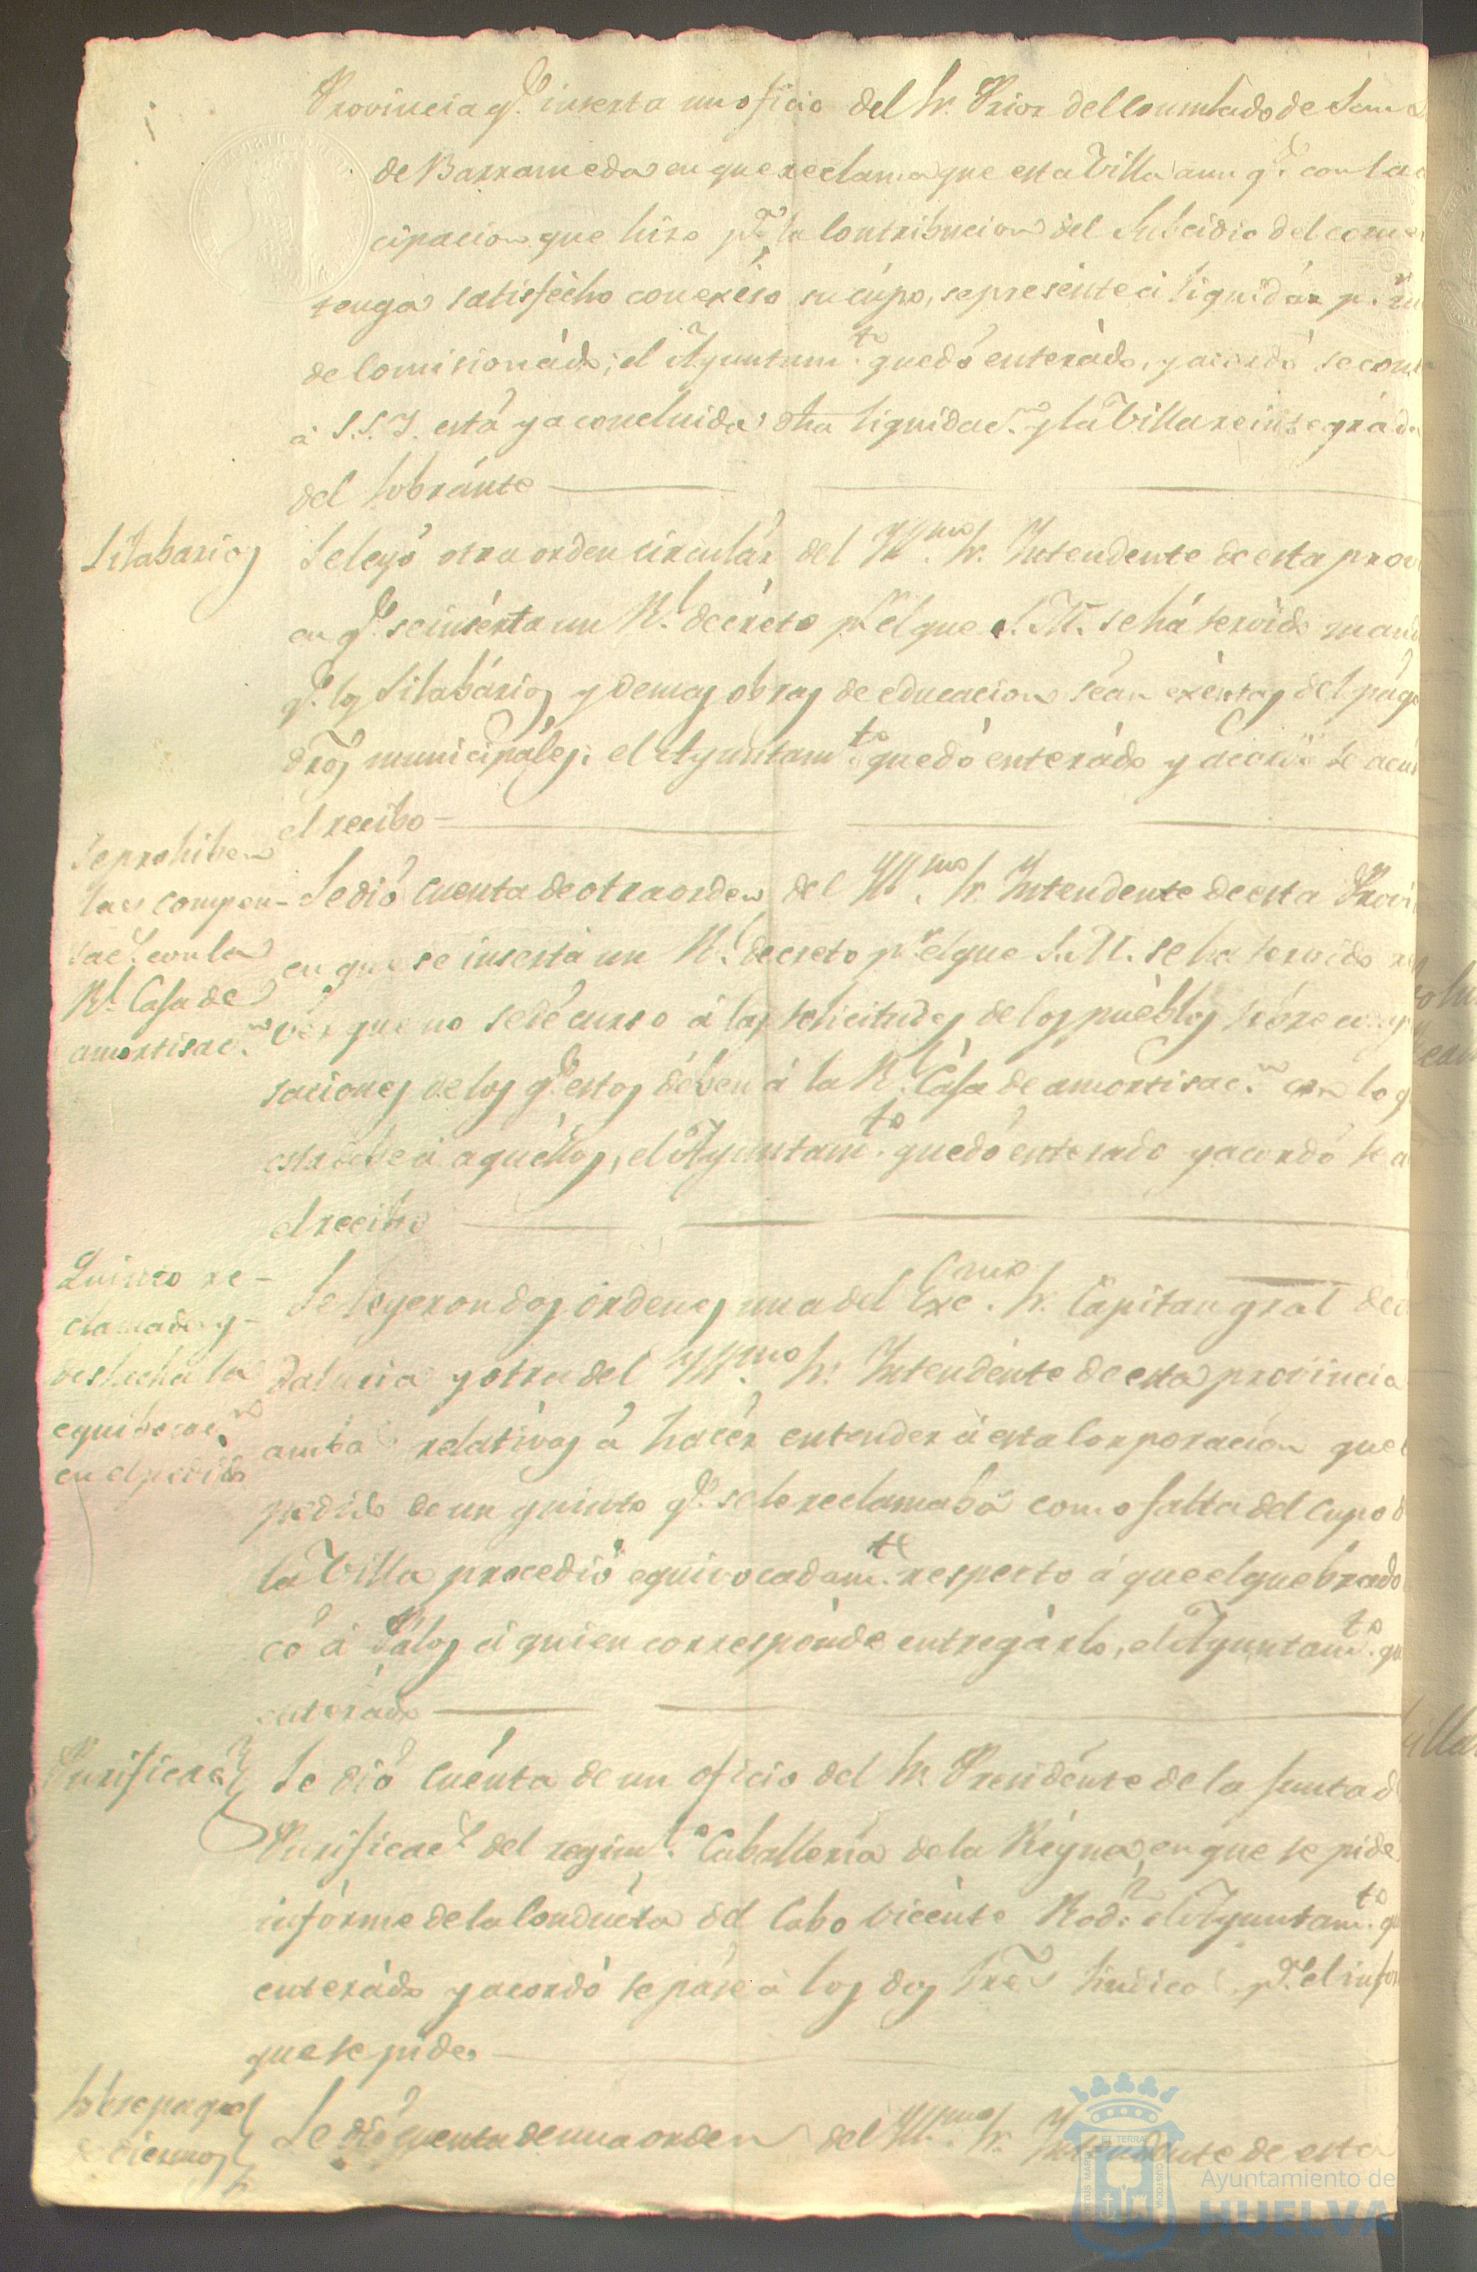 Provincia q.e inserta un oficio del Sr. Prior del Consulado de San
de Barrameda en que reclama que esta Villa aun q.e con la
cipacion que hizo p.a la Contribucion del Subcidio del comer
tenga satisfecho con exéso su cúpo, se presénte á liquidár p.r
de Comisionádo; el Ayuntam.to quedó enterádo, y acordó se con
á S.S.Y. está ya concluida dha liquidac.n y la Villa reintegráda
del sobránte
Silabarios
Se leyó otra orden circulár del Yll.mo Sr. Yntendente de esta prov
en q.e se insérta un R.l decréto p.r el que S.M. se há servido mand
q.e los Silabários y demas obras de educacion séan exéntas del págo
dros municipáles; el Ayuntam.to quedó enterádo y acordó se acús
el recibo
Se prohiben
las compen-
sac.s con la
R.l Casa de
amortisac.n
Se dió cuenta de otra orden del Yll.mo Sr. Yntendente de esta Provi
en que se inserta un R.l decreto p.r el que S.M. se ha servido
vér que no se dé curso á las solicitudes de los puéblos sóbre
saciones de los q.e estos dében á la R.l Cása de amortisac.n con lo q
esta débe á aquéllos, el Ayuntam.to quedó enterado y acordó se a
el recibo
Quinto re-
clamado y
deshecha la
equibocac.n
en el pedido
Se leyeron dos órdenes una del Exc.mo Sr. Capitan gral de
dalucia y otra del Yll.mo Sr. Yntendénte de esta província
ambas relatívas á hacér entender á esta Corporación que
pedído de un quinto q.e se le reclamabá como falta del cupo d
la Villa procedió equivocadam.te respecto á que el quebrado
có á Pálos á quien correspónde entregárlo, el Ayuntam.to qu
enterádo
Purificac.s
Se dió cuénta de un oficio del Sr. Presidénte de la Junta d
Purificac.s del regim.to Caballería de la Réyna, en que se pide
infórme de la Condúcta del Cabo Vicénte Rod.z el Ayuntam.to q
enterádo y acordó se páse á los dos Sres Sindicos p.a el infor
que se pide
Sobre pagos
de diezmos
Se dió cuenta de una orden del Yll.mo Sr. Yntendente de esta
EL TERRAE
PORTUS MARIS
CUSTODIA
Ayuntamiento de
HUELVA